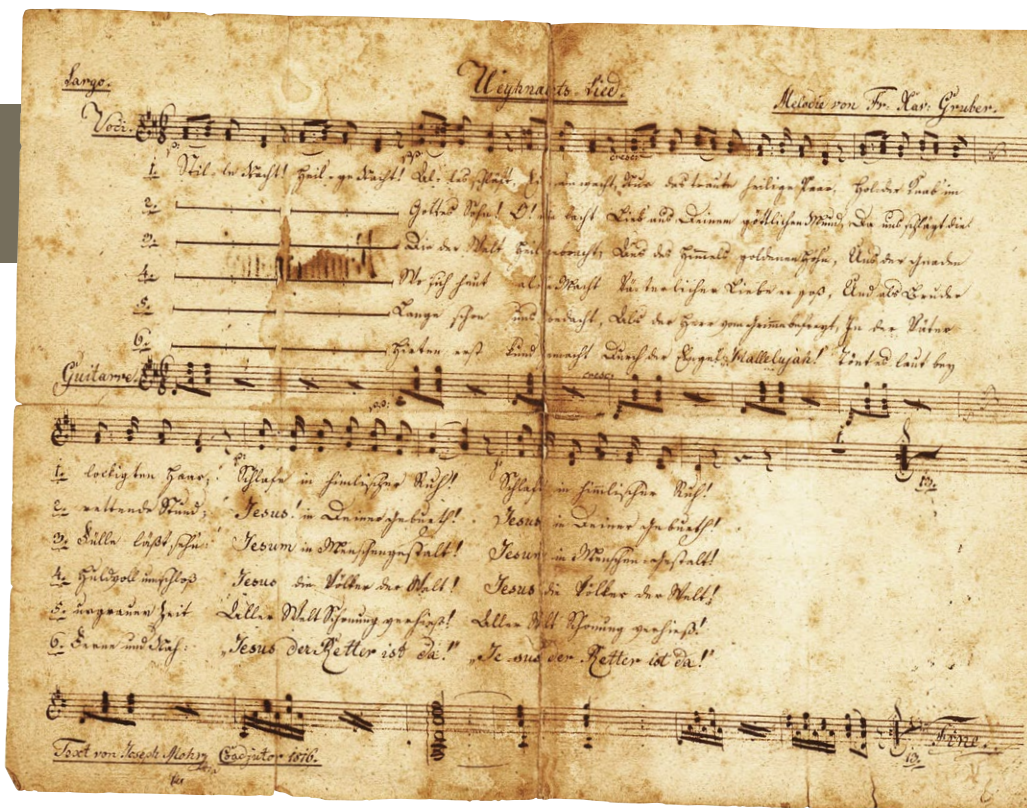 Largo.
Weyhnachts-Lied.
Melodie von Fr. Xav: Gruber.
Voci.
cresc:
1. Stil-le Nacht! Heil-ge Nacht! Al-les schläft, Ei-sam wacht, Nur das traute heilige Paar. Holder Knab' im
2. Gottes Sohn! O! wie lacht Lieb' aus Deinem göttlichen Mund, Da uns schlägt die
3. Die der Welt Heil gebracht, Aus des Himmels goldenen Höhn, Uns der Gnaden
4. Wo sich heut alle Macht Väterlicher Liebe ergoß, Und als Bruder
5. Lange schon uns bedacht, Als der Herr vom Grimme befreyt, In der Väter
6. Hirten erst kund gemacht Durch der Engel "Hallelujah!" Tönt es laut bey
Guitarre.
cresc:
1. lockigten Haar; Schlafe in himlischer Ruh! Schlafe in himlischer Ruh!
2. rettende Stund; Jesus! in Deiner Geburth! Jesus in Deiner Geburth!
3. Fülle läßt sehn: Jesum in Menschengestalt! Jesum in Menschengestalt!
4. Huldvoll umschloß Jesus die Völker der Welt! Jesus die Völker der Welt!
5. urgrauer Zeit Aller Welt Schonung verhieß! Aller Welt Schonung verhieß!
6. Ferne und Nah: „Jesus der Retter ist da!" „Jesus der Retter ist da!"
Fine.
Text von Joseph Mohr Coadjutor 1816.